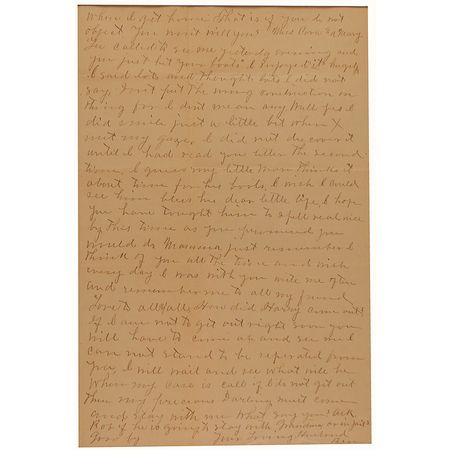 when I get home that is if you do not
object you wont will you? Miss Cora
Lee called to see me yesterday evening and
you just bet your boots I enjoyed it
I said lots and thought lots I did not
say, Dont put the wrong construction on
this for I dont mean any
did smile just a little bit when I
met my gaze, I did not discover it
until I had read your letter the second
time, I guess my little man thinks it
about time for his boots, I wish I could
see him bless his dear little life, I hope
you have taught him to spell real nice
by this time as you promised you
would do Mamma just remember I
think of you all the time and wish
every day I was with you write me often
and remember me to all my friends
Love to all How did Harry come out?
If I am not to get out right soon you
will have to come up and see me I
can not stand to be seperated from
you I will wait and see what will be
when my case is call if I do not get out
then my precious Darling must come
and stay with me What say you? ask
if he is going to stay with Grandma
Good by Your Loving Husband